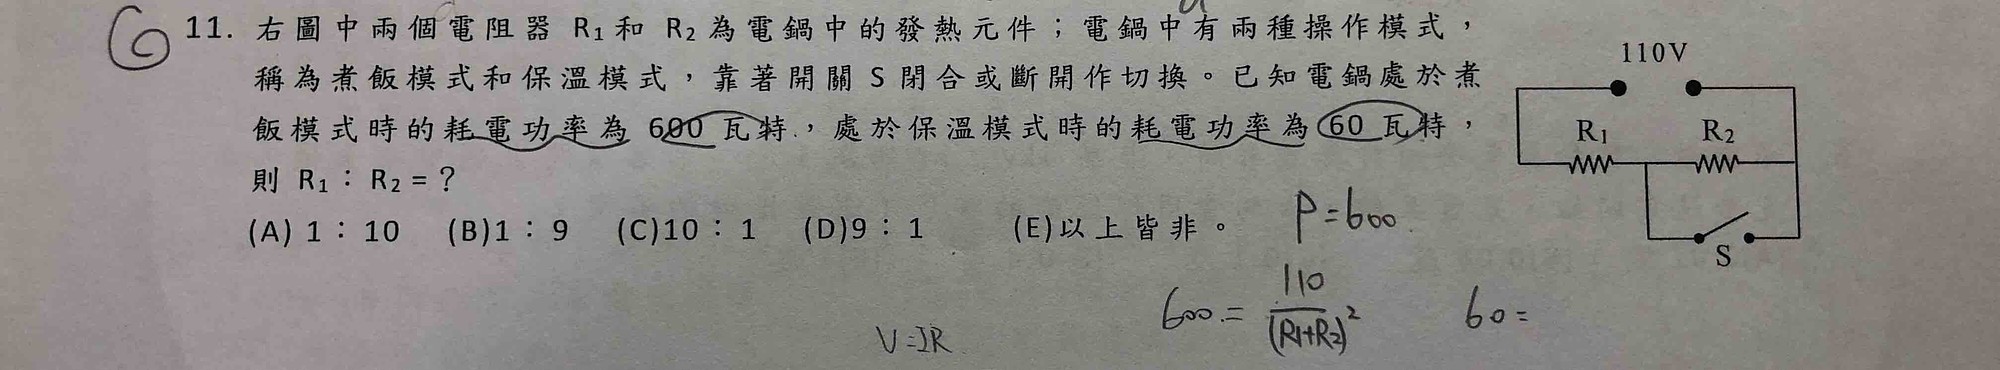 11. 右圖中兩個電阻器 R₁和 R₂為電鍋中的發熱元件；電鍋中有兩種操作模式，
稱為煮飯模式和保溫模式，靠著開關 S 閉合或斷開作切換。已知電鍋處於煮
飯模式時的耗電功率為 600 瓦特，處於保溫模式時的耗電功率為 60 瓦特，
則 R₁：R₂ = ？
(A) 1：10 (B)1：9 (C)10：1 (D)9：1 (E)以上皆非。
110V
R₁ R₂
S
P=600
600 = 110/(R1+R2)² 60=
V=IR